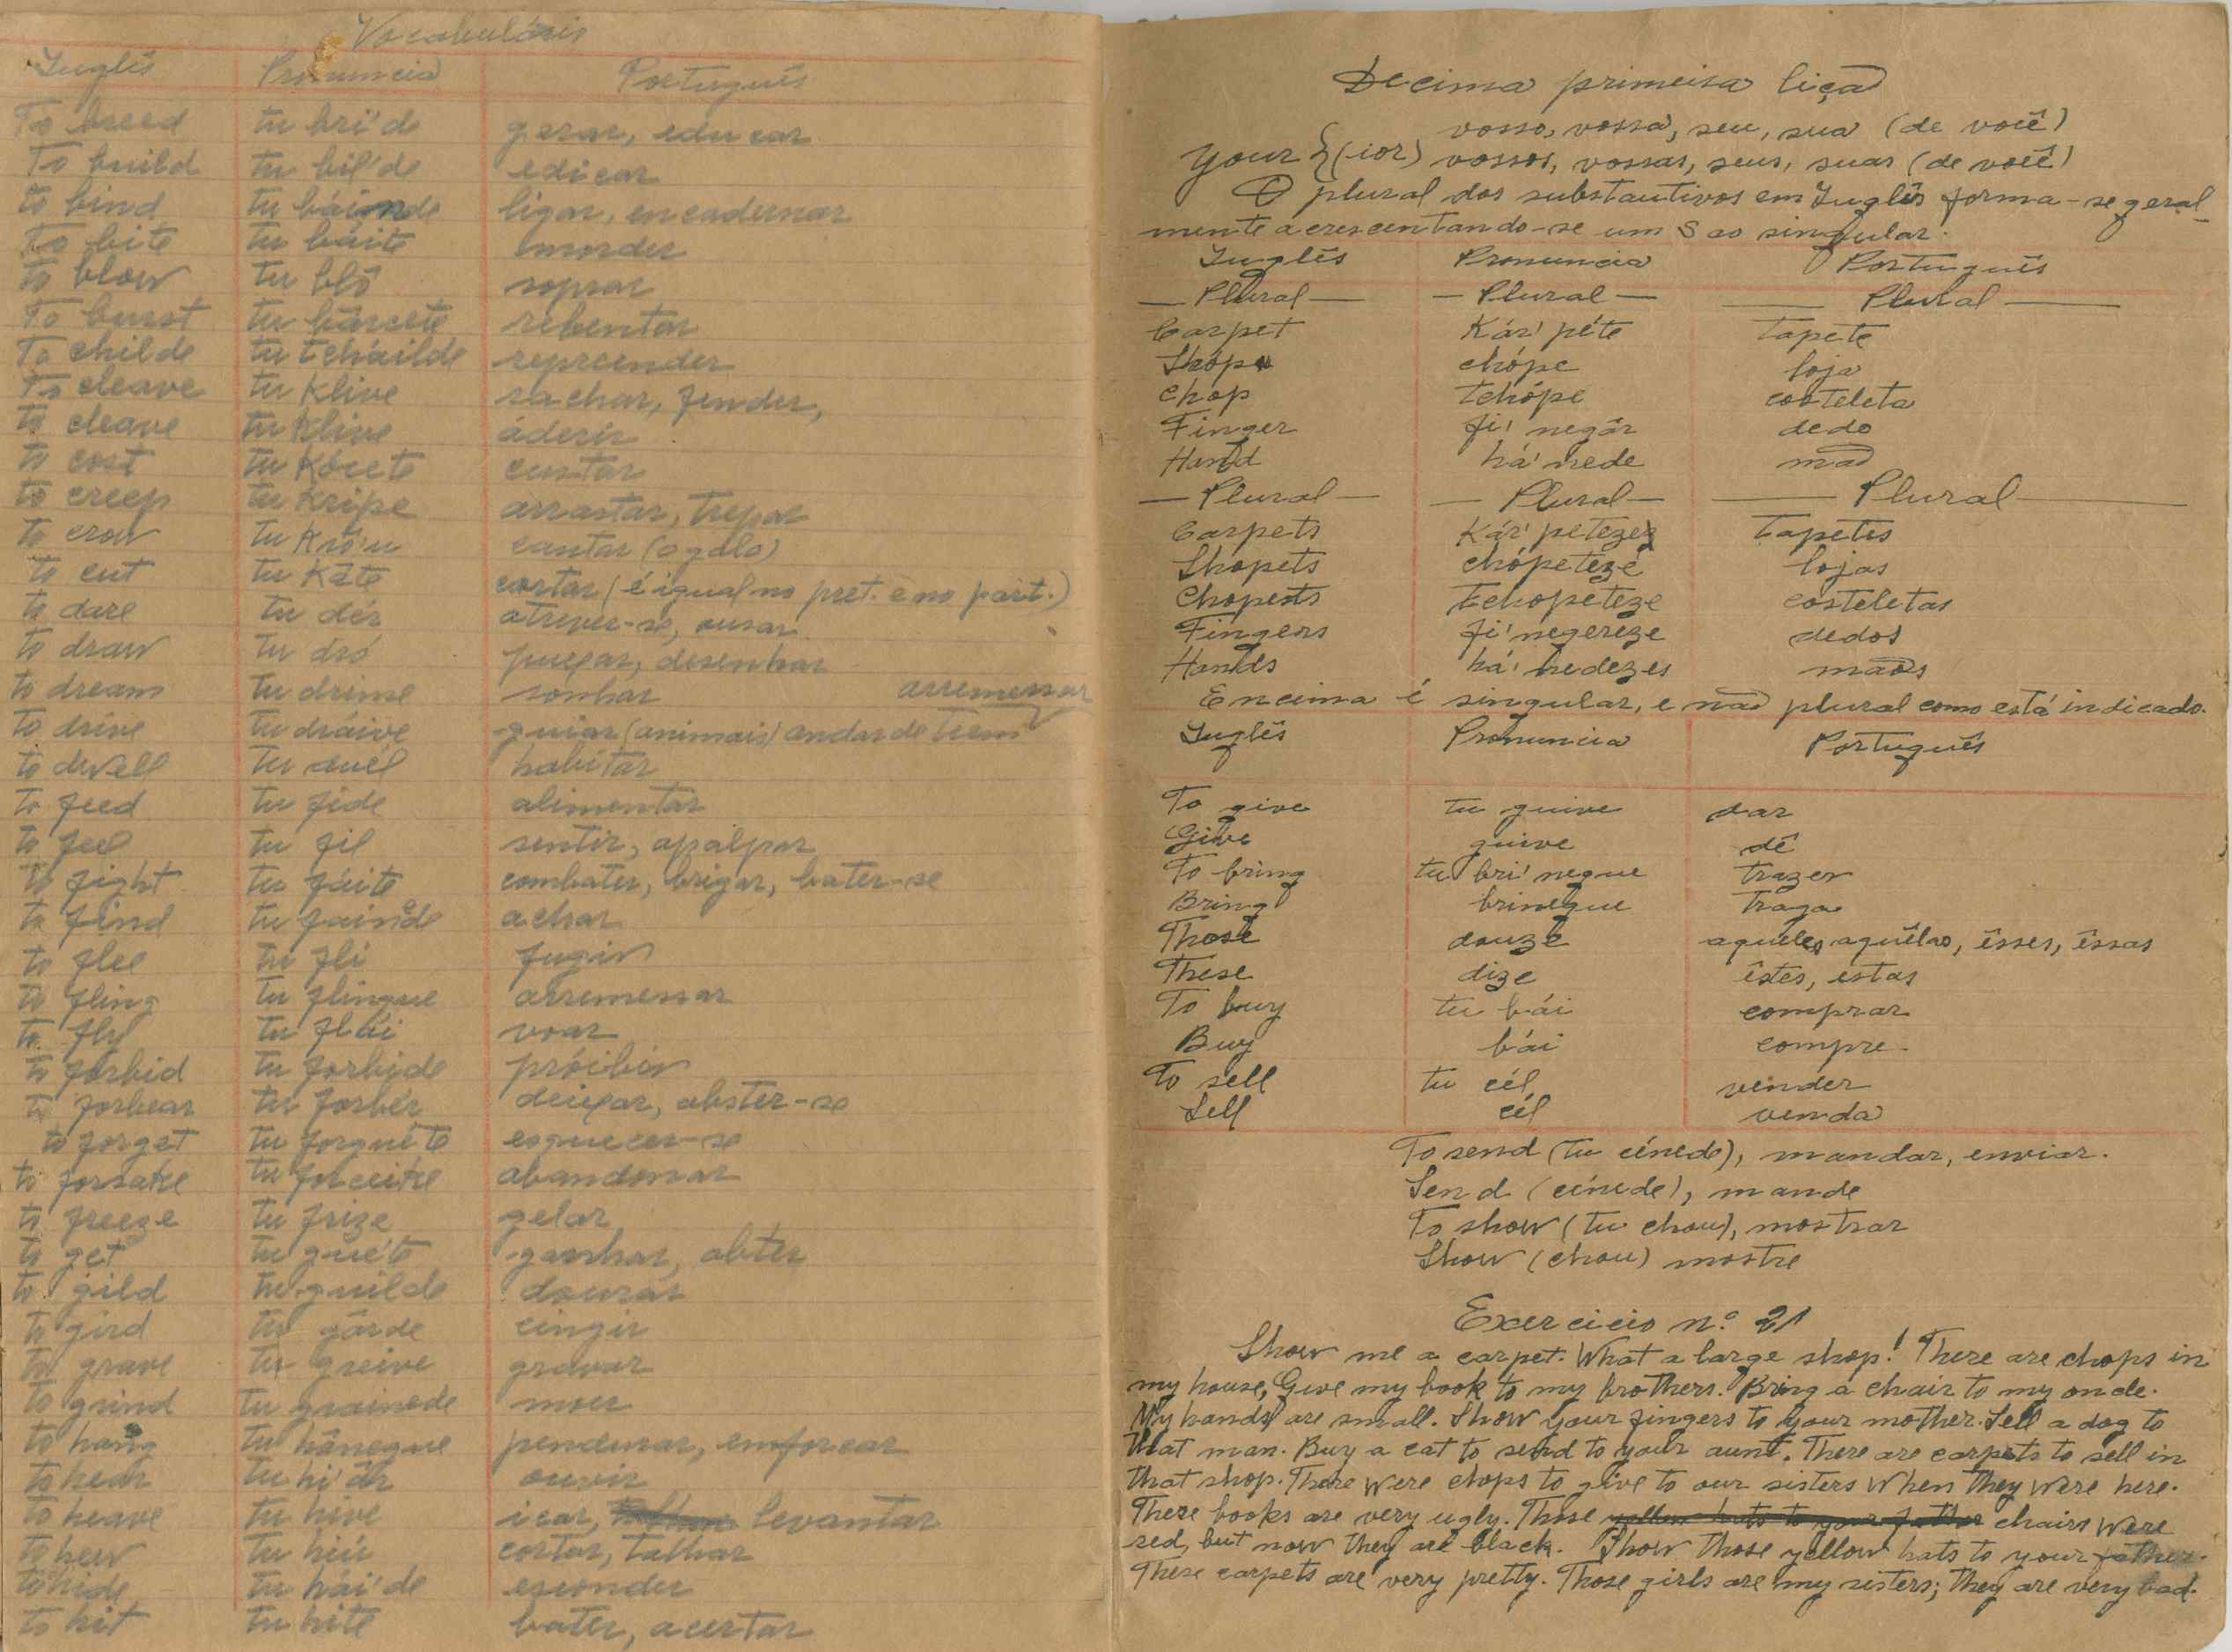 Vocabulário
Inglês Pronuncia Português
To breed tu bri'de gerar, educar
To build tu bil'de edicar
to bind tu báinde ligar, encadernar
To bite tu báite morder
to blow tu blô soprar
To burst tu bârcete rebentar
To childe tu tcháilde repreender
To cleave tu klive rachar, fender,
to cleave tu klive áderir
to cost tu kócete custar
to creep tu kripe arrastar, trepar
to crow tu krô'u cantar (o galo)
to cut tu kâte cortar (é igual no pret. e no part.)
to dare tu dér atrever-se, ousar
to draw tu dró puxar, desenhar
to dream tu drime sonhar arremessar
to drive tu dráive guiar (animais) andar de trem
to dwell tu duél habitar
to feed tu fide alimentar
to feel tu fil sentir, apalpar
to fight tu fáite combater, brigar, bater-se
to find tu fainede achar
to flee tu fli fugir
to fling tu flingue arremessar
to fly tu flái voar
to forbid tu forbide próibir
to forbear tu forbér deixar, abster-se
to forget tu forguéte esquecer-se
to forsake tu forceike abandonar
to freeze tu frize gelar
to get tu guéte ganhar, obter
to gild tu guilde dourar
to gird tu gârde cingir
to grave tu greive gravar
to grind tu grainede moer
to hang tu hânegue pendurar, emforcar
to hear tu hi'âr ouvir
to heave tu hive icar, levantar
to hew tu hiú cortar, talhar
to hide tu hái'de esconder
to hit tu hite bater, acertar
Decima primeira liçaõ
vosso, vossa, seu, sua (de você)
your }(ior) vossos, vossas, seus, suas (de você)
O plural dos substantivos em Inglês forma-se geral-
mente acrescentando-se um S ao singular.
Inglês Pronuncia Português
— Plural — — Plural — — Plural —
Carpet Kár'péte Tapete
Shop chópe loja
Chop tchópe costeleta
Finger fi'negâr dedo
Hand há'nede maõ
— Plural — — Plural — — Plural —
Carpets Kár'petezez Tapetes
Shopets chópeteze lojas
Chopests tchopeteze costeletas
Fingers fi'negereze dedos
Hands há'nedezes maõs
Encima é singular, e naõ plural como está indicado.
Inglês Pronuncia Português
To give tu guive dar
Give guive dê
To bring tu bri'negue trazer
Bring brinegue Traga
Those douze aquêles, aquêlas, êsses, êssas
These dize êstes, estas
To buy tu bái comprar
Buy bái compre
To sell tu cél vender
Sell cél venda
To send (tu cénede), mandar, enviar.
Send (cénede), mande
To show (tu chou), mostrar
Show (chou) mostre
Exercicio n.º 21
Show me a carpet. What a large shop! There are chops in
my house, Give my book to my brothers. Bring a chair to my oncle.
My hands are small. Show your fingers to your mother. Sell a dog to
that man. Buy a cat to send to your aunt. There are carpets to sell in
that shop. There were chops to give to our sisters when they were here.
These books are very ugly. Those yellow hats to your father chairs were
red, but now they are black. Show those yellow hats to your father.
These carpets are very pretty. Those girls are my sisters; they are very bad.